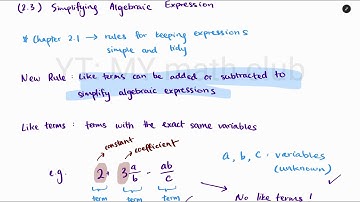 (2.3) Simplifying Algebraic Expression
* Chapter 2.1 → rules for keeping expressions
simple and tidy
YT: MY math club
New Rule : Like terms can be added or subtracted to
simplify algebraic expressions
Like terms : terms with the exact same variables
constant
coefficient
a, b, c : variables
(unknown)
e.g. 2 + 3 a/b - ab/c
term term term
No like terms !